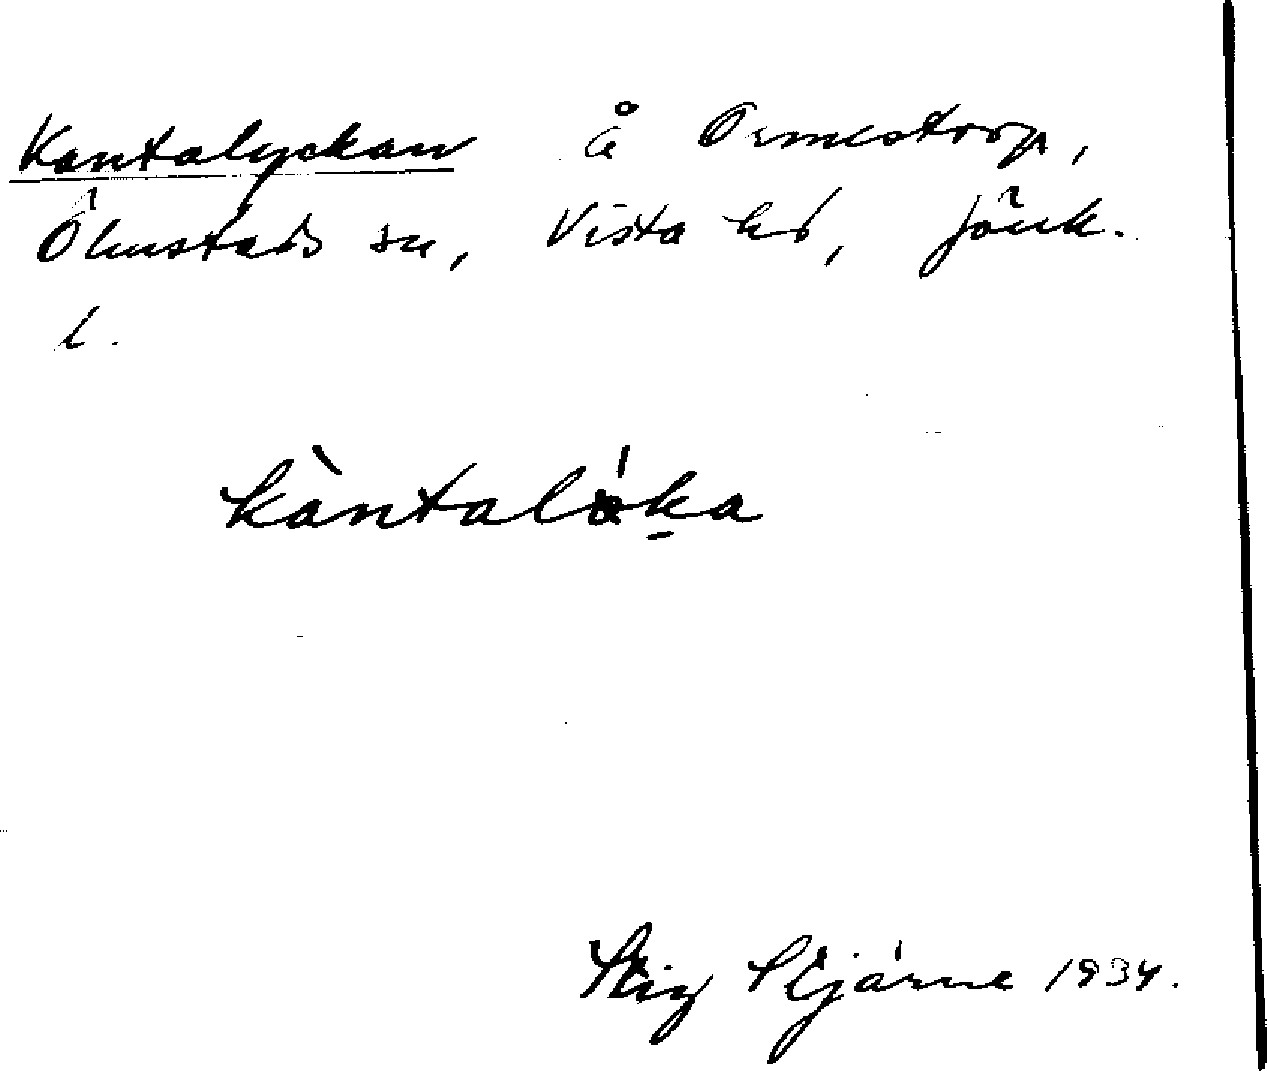 Kantalyckan å Ormestorp,
Ölmstads sn, Vista hd, Jönk.
l.
kàntalǿka
Stig Stjärne 1934.